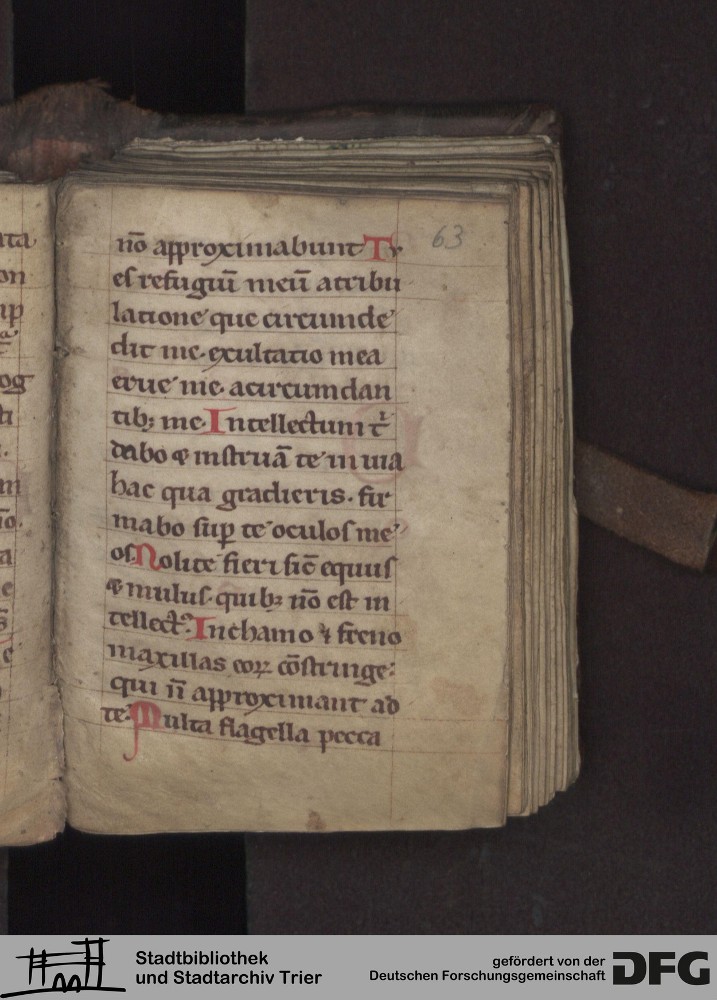 63
nō approximabunt Tv
es refugiū meū atribu
latione que circumde
dit me. exultatio mea
erue me. acircumdan
tib; me. Intellectum t'
dabo & instruā te in uia
hac qua gradieris. fir
mabo sup te oculos me
os Nolite fieri sic̄ equus
& mulus. quib; nō est in
tellect9. Inchamo & freno
maxillas eoꝝ cōstringe:
qui n̄ approximant ad
te. Multa flagella pecca
Stadtbibliothek
und Stadtarchiv Trier
gefördert von der
Deutschen Forschungsgemeinschaft
DFG